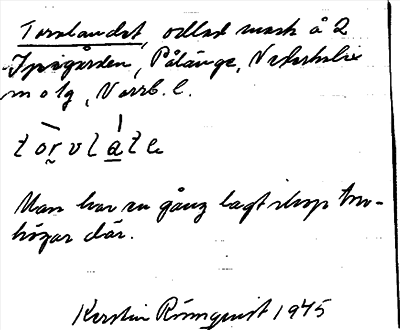 Torvlandet, odlad mark å 2
Ipsigården, Pålänge, Nederkalix
m o lg, Norrb. l.
tǫrvlate
Man har en gång lagt ihop torv-
högar där.
Kerstin Rönnquist 1945